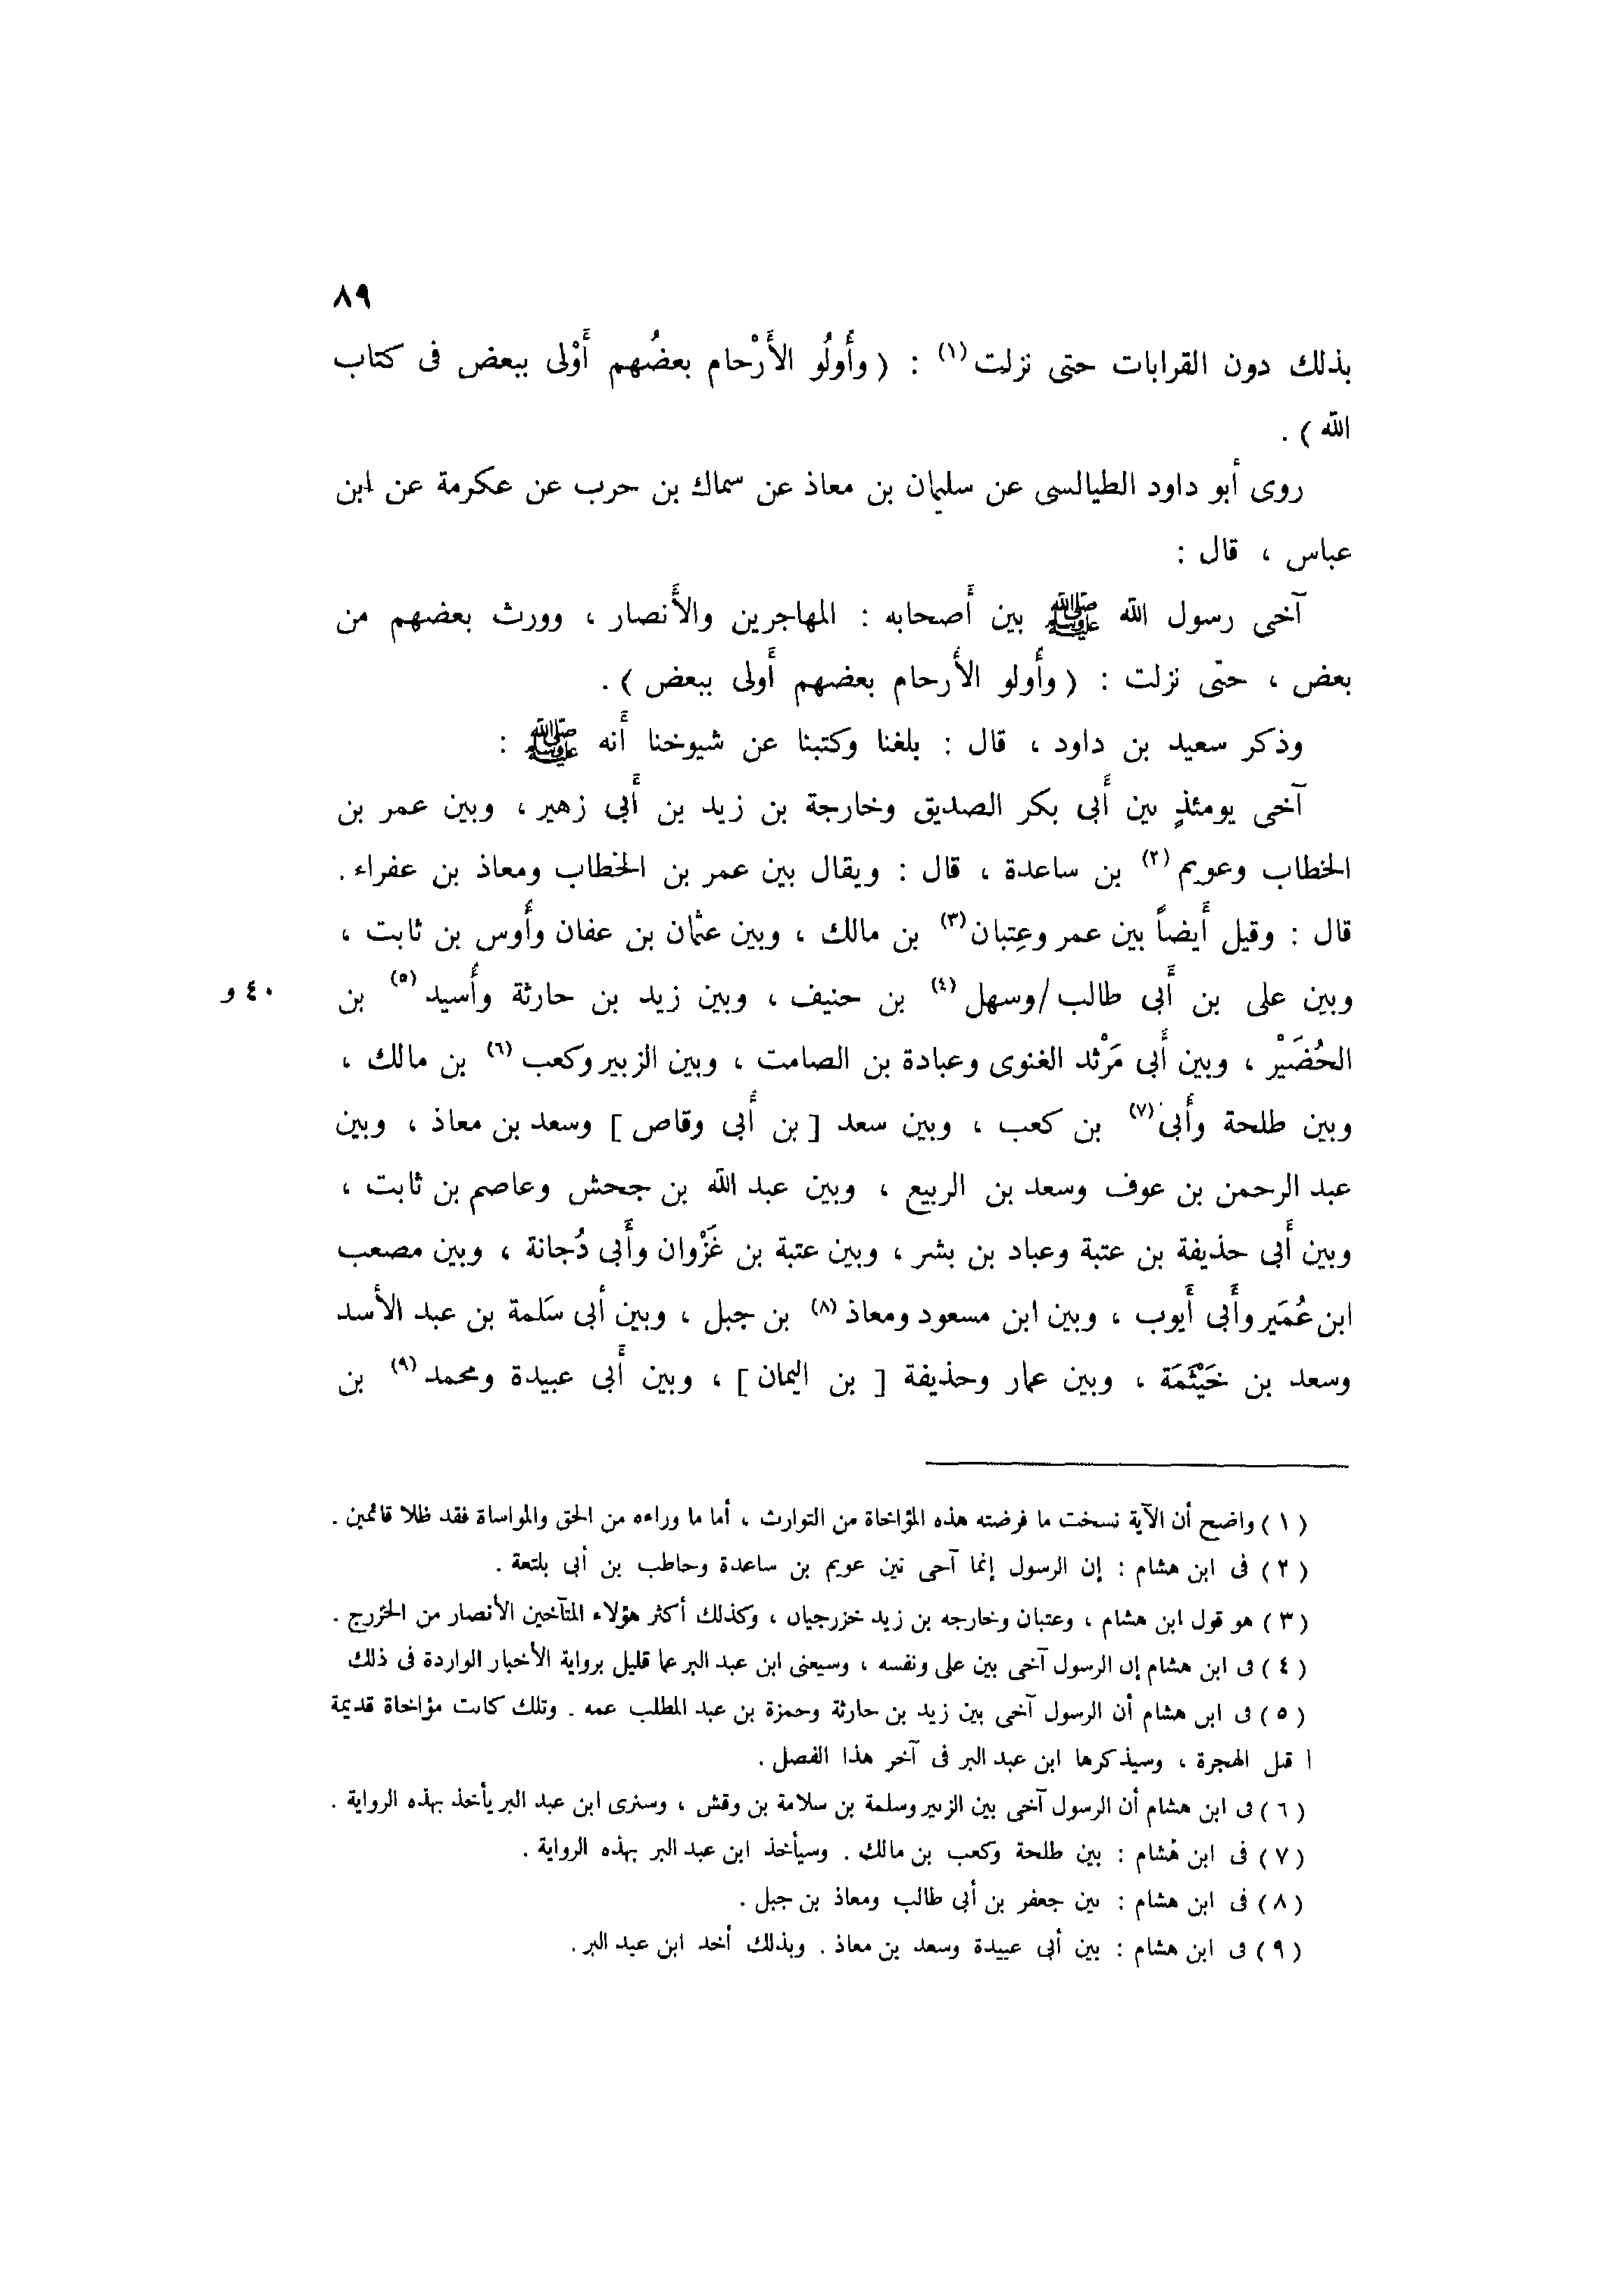 ٨٩
بذلك دون القرابات حتى نزلت (١) : ( وأُولُو الأَرْحام بعضُهم أَوْلى ببعض فى كتاب
الله ) .
روى أبو داود الطيالسى عن سليمان بن معاذ عن سماك بن حرب عن عكرمة عن ابن
عباس ، قال :
آخى رسول الله ﷺ بين أَصحابه : المهاجرين والأَنصار ، وورث بعضهم من
بعض ، حتّى نزلت : ( وأُولو الأَرحام بعضهم أَولى ببعض ) .
وذكر سعيد بن داود ، قال : بلغنا وكتبنا عن شيوخنا أَنه ﷺ :
آخى يومئذٍ بين أَبى بكر الصديق وخارجة بن زيد بن أَبى زهير ، وبين عمر بن
الخطاب وعويم (٢) بن ساعدة ، قال : ويقال بين عمر بن الخطاب ومعاذ بن عفراء .
قال : وقيل أَيضاً بين عمر وعِتبان (٣) بن مالك ، وبين عثمان بن عفان وأَوس بن ثابت ،
وبين على بن أَبى طالب /وسهل (٤) بن حنيف ، وبين زيد بن حارثة وأُسيد (٥) بن
٤٠ و
الحُضَيْر ، وبين أَبى مَرْثد الغنوى وعبادة بن الصامت ، وبين الزبير وكعب (٦) بن مالك ،
وبين طلحة وأُبى (٧) بن كعب ، وبين سعد [ بن أَبى وقاص ] وسعد بن معاذ ، وبين
عبد الرحمن بن عوف وسعد بن الربيع ، وبين عبد الله بن جحش وعاصم بن ثابت ،
وبين أَبى حذيفة بن عتبة وعباد بن بشر ، وبين عتبة بن غَزْوان وأَبى دُجانة ، وبين مصعب
ابن عُمَير وأَبى أَيوب ، وبين ابن مسعود ومعاذ (٨) بن جبل ، وبين أبى سَلمة بن عبد الأسد
وسعد بن خَيْثَمَة ، وبين عمار وحذيفة [ بن اليمان ] ، وبين أَبى عبيدة ومحمد (٩) بن
( ١ ) واضح أن الآية نسخت ما فرضته هذه المؤاخاة من التوارث ، أما ما وراءه من الحق والمواساة فقد ظلا قائمين .
( ٢ ) فى ابن هشام : إن الرسول إنما آخى بين عويم بن ساعدة وحاطب بن أبى بلتعة .
( ٣ ) هو قول ابن هشام ، وعتبان وخارجه بن زيد خزرجيان ، وكذلك أكثر هؤلاء المتآخين الأنصار من الخزرج .
( ٤ ) فى ابن هشام إن الرسول آخى بين على ونفسه ، وسيعنى ابن عبد البر عما قليل برواية الأخبار الواردة فى ذلك
( ٥ ) فى ابن هشام أن الرسول آخى بين زيد بن حارثة وحمزة بن عبد المطلب عمه . وتلك كانت مؤاخاة قديمة
قبل الهجرة ، وسيذكرها ابن عبد البر فى آخر هذا الفصل .
( ٦ ) فى ابن هشام أن الرسول آخى بين الزبير وسلمة بن سلامة بن وقش ، وسنرى ابن عبد البر يأخذ بهذه الرواية .
( ٧ ) فى ابن هشام : بين طلحة وكعب بن مالك . وسيأخذ ابن عبد البر بهذه الرواية .
( ٨ ) فى ابن هشام : بين جعفر بن أبى طالب ومعاذ بن جبل .
( ٩ ) فى ابن هشام : بين أبى عبيدة وسعد بن معاذ . وبذلك أخذ ابن عبد البر .